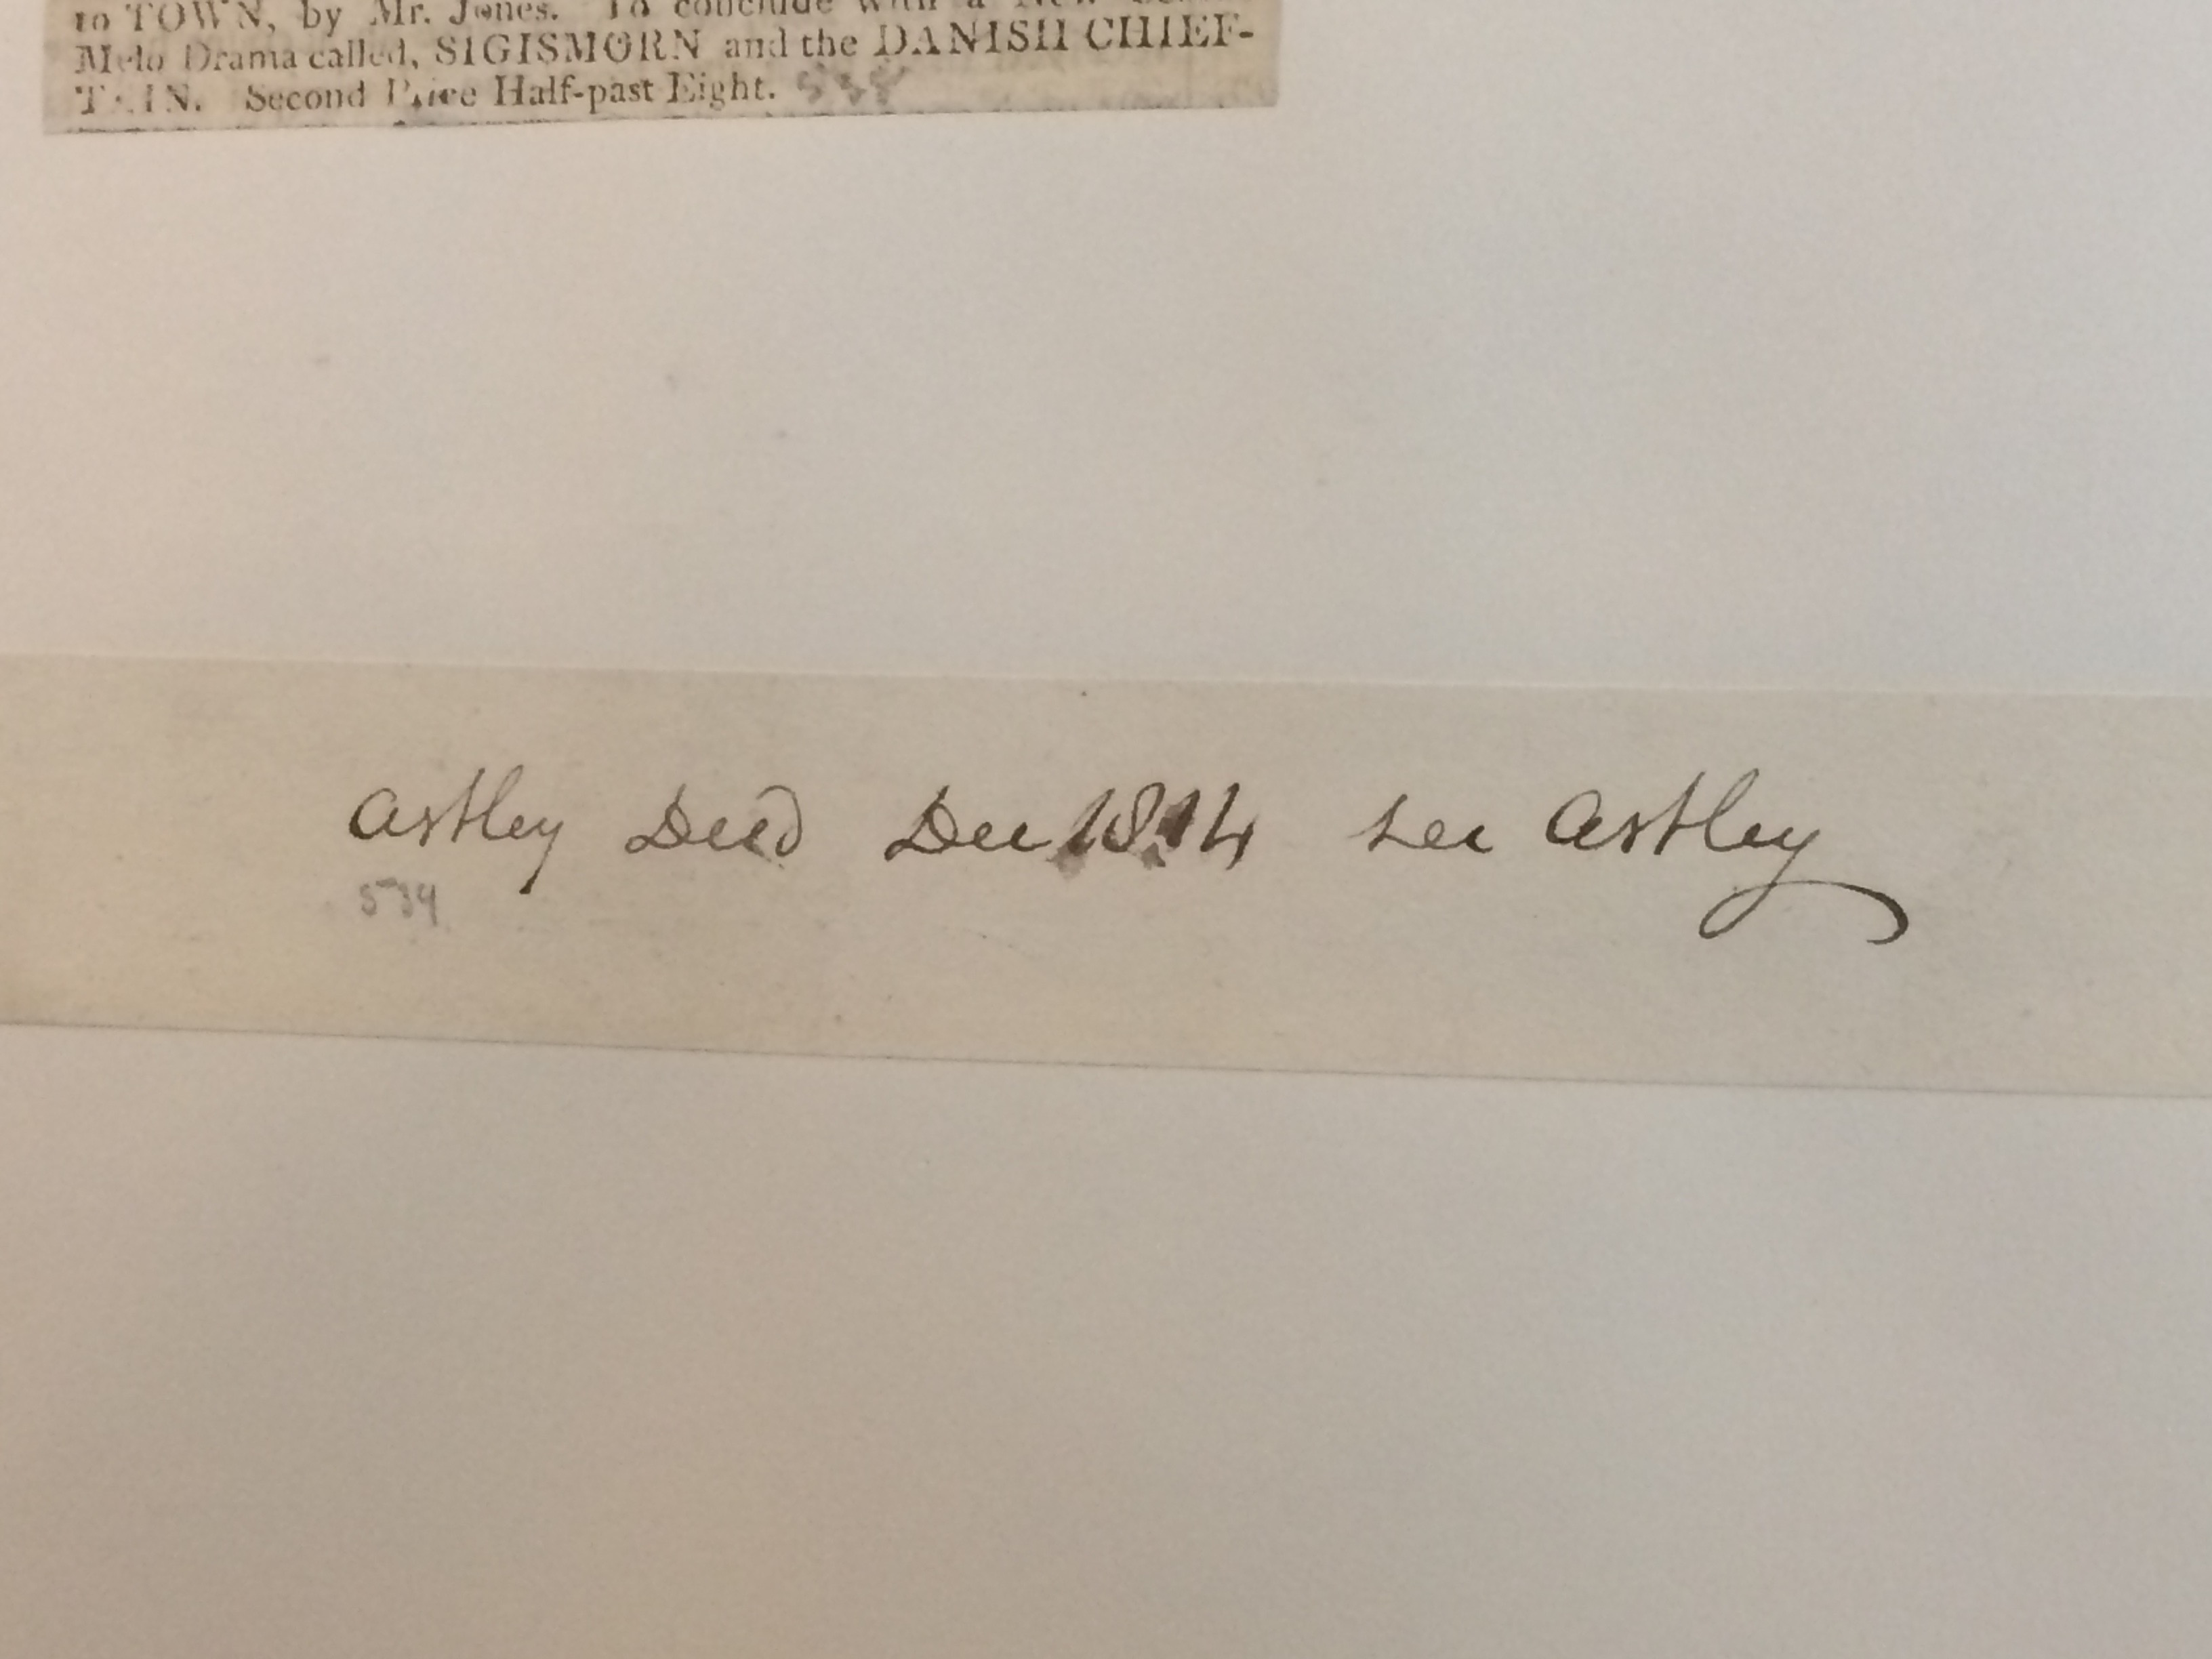 to TOWN, by Mr. Jones. To conclude with a New
Melo Drama called, SIGISMORN and the DANISH CHIEF-
TAIN. Second Price Half-past Eight. 538
Astley Died Dec 1814 see Astley
534